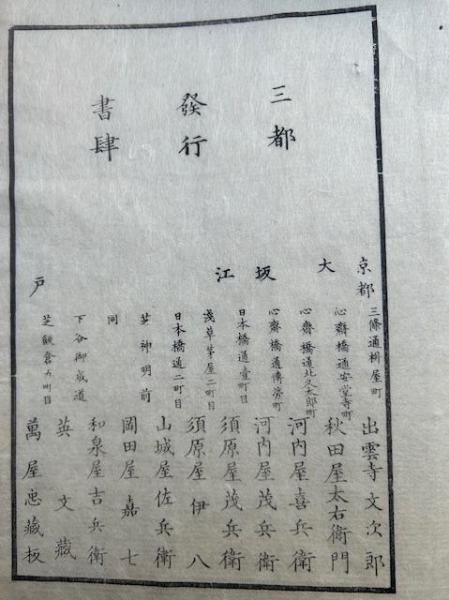 三都
發行
書肆
京都 三條通桝屋町 出雲寺文次郎
大 心齋橋通安堂寺町 秋田屋太右衛門
心齋橋通北久太郎町 河内屋喜兵衛
坂 心齋橋通博労町 河内屋茂兵衛
江 日本橋通壹町目 須原屋茂兵衛
淺草茅屋二町目 須原屋伊八
日本橋通二町目 山城屋佐兵衛
芝神明前 岡田屋嘉七
同 和泉屋吉兵衛
下谷御成道 英文藏
戸 芝飯倉五町目 萬屋忠藏板